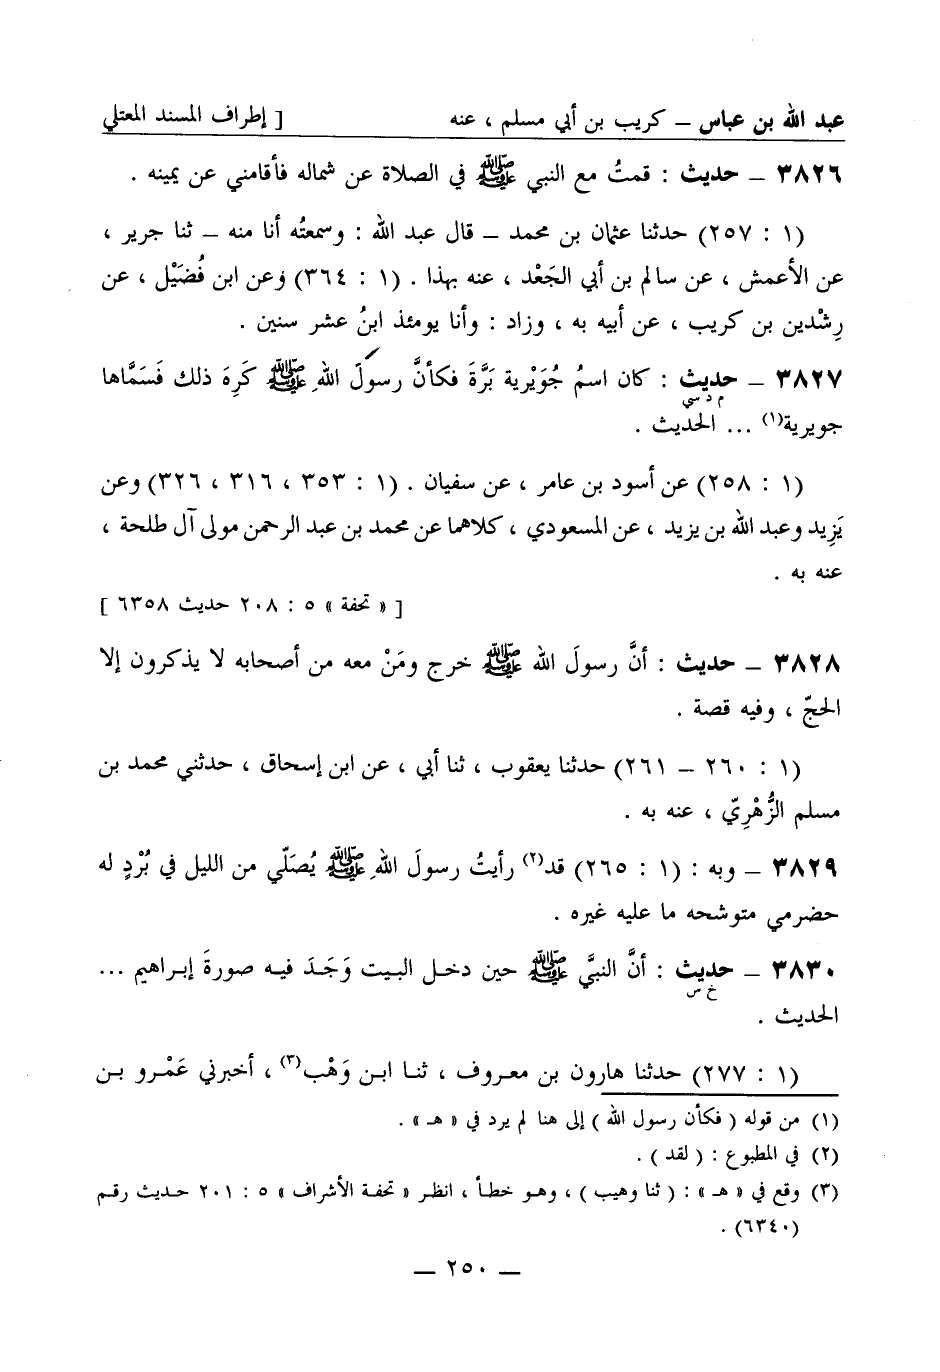 عبد الله بن عباس – كريب بن أبي مسلم ، عنه [ إطراف المسند المعتلي
٣٨٢٦ – حديث : قمتُ مع النبي ﷺ في الصلاة عن شماله فأقامني عن يمينه .
(١ : ٢٥٧) حدثنا عثمان بن محمد – قال عبد الله : وسمعتُه أنا منه – ثنا جرير ،
عن الأعمش ، عن سالم بن أبي الجَعْد ، عنه بهذا . (١ : ٣٦٤) وعن ابن فُضَيْل ، عن
رِشْدين بن كريب ، عن أبيه به ، وزاد : وأنا يومئذ ابنُ عشر سنين .
٣٨٢٧ – حديث : كان اسمُ جُوَيْرية بَرَّةَ فكأنَّ رسولَ اللهِ ﷺ كَرِهَ ذلك فَسَمَّاها
م د سي
جويرية(١) ... الحديث .
(١ : ٢٥٨) عن أسود بن عامر ، عن سفيان . (١ : ٣٥٣ ، ٣١٦ ، ٣٢٦) وعن
يَزِيد وعبد الله بن يزيد ، عن المسعودي ، كلاهما عن محمد بن عبد الرحمن مولى آل طلحة ،
عنه به .
[ « تحفة » ٥ : ٢٠٨ حديث ٦٣٥٨ ]
٣٨٢٨ – حديث : أنَّ رسولَ الله ﷺ خرج ومَنْ معه من أصحابه لا يذكرون إلا
الحجّ ، وفيه قصة .
(١ : ٢٦٠ – ٢٦١) حدثنا يعقوب ، ثنا أبي ، عن ابن إسحاق ، حدثني محمد بن
مسلم الزُّهْرِيّ ، عنه به .
٣٨٢٩ – وبه : (١ : ٢٦٥) قد(٢) رأيتُ رسولَ اللهِ ﷺ يُصَلّي من الليل في بُرْدٍ له
حضرمي متوشحه ما عليه غيره .
٣٨٣٠ – حديث : أنَّ النبيَّ ﷺ حين دخل البيت وَجَدَ فيه صورةَ إبراهيم ...
خ س
الحديث .
(١ : ٢٧٧) حدثنا هارون بن معروف ، ثنا ابن وَهْب(٣) ، أخبرني عَمْرو بن
(١) من قوله ( فكأن رسول الله ) إلى هنا لم يرد في « هـ » .
(٢) في المطبوع : ( لقد ) .
(٣) وقع في « هـ » : ( ثنا وهيب ) ، وهو خطأ ، انظر « تحفة الأشراف » ٥ : ٢٠١ حديث رقم
(٦٣٤٠) .
– ٢٥٠ –